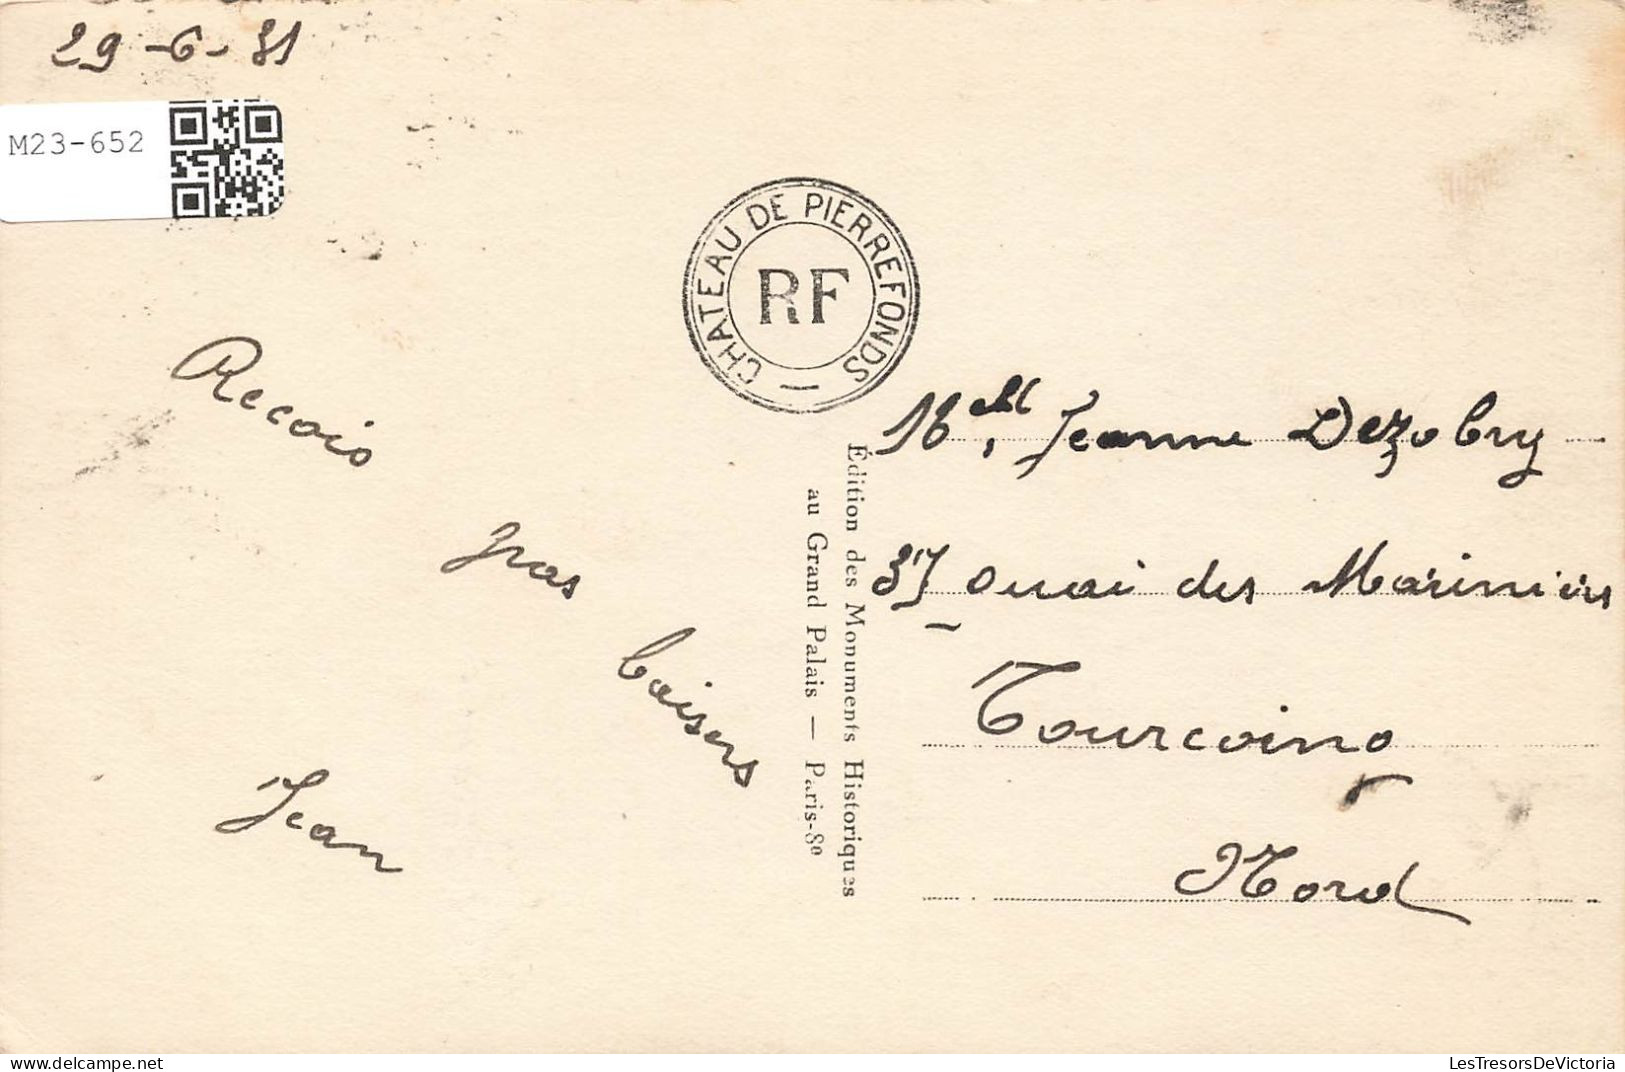 29-6-31
M23-652
CHATEAU DE PIERREFONDS —
RF
Recois
gros
baisers
Jean
Édition des Monuments Historiques
au Grand Palais — Paris-8e
Melle Jeanne Dezobry
37 Quai des Mariniers
Tourcoing
Nord
LesTresorsDeVictoria